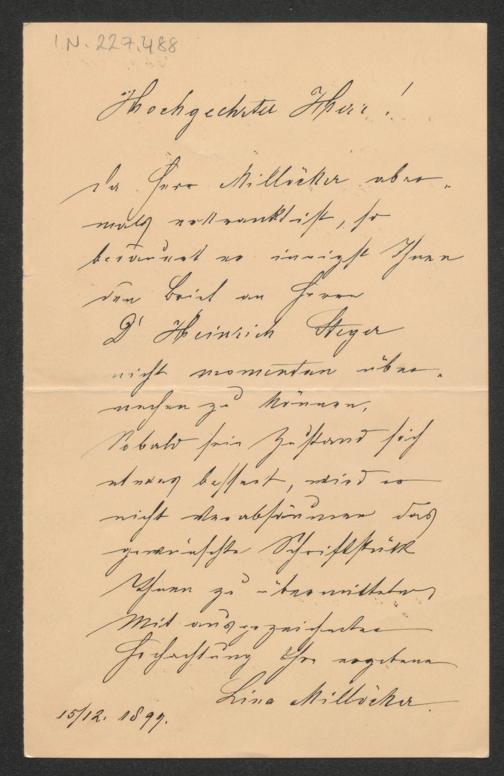 I.N. 227.488
Hochgeehrter Herr!
Da Herr Millöcker aber-
mals erkrankt ist, so
bedauert er innigst Ihnen
den Brief an Herrn
Dr Heinrich Steger
nicht momentan über-
machen zu können.
Sobald sein Zustand sich
etwas bessert, wird er
nicht verabsäumen das
gewünschte Schriftstück
Ihnen zu übermitteln
Mit ausgezeichneter
Hochachtung Ihre ergebene
Lina Millöcker.
15/12. 1899.